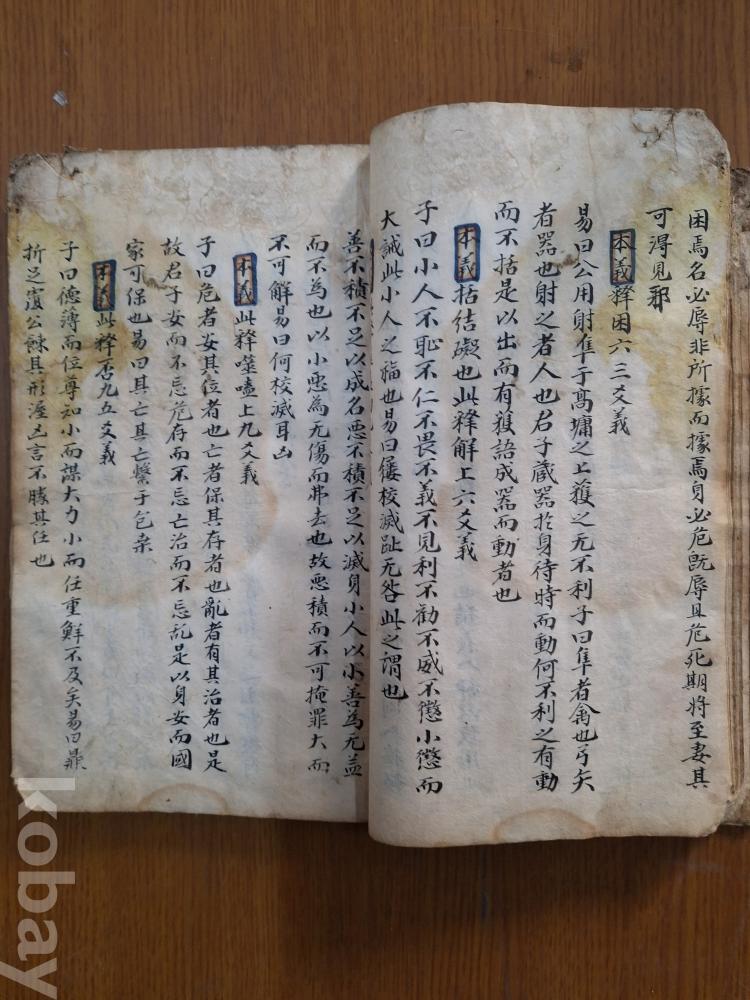 困焉名必辱非所據而據焉身必危既辱且危死期將至妻其
可淂見邪
本義釋困六三爻義
易曰公用射隼于髙墉之上獲之无不利子曰隼者禽也弓矢
者器也射之者人也君子藏器扵身待時而動何不利之有動
而不括是以出而有獲語成器而動者也
本義括結礙也此釋解上六爻義
子曰小人不恥不仁不畏不義不見利不勸不威不懲小懲而
大誡此小人之福也易曰屨校滅趾无咎此之謂也
善不積不足以成名悪不積不足以滅身小人以小善為无益
而不為也以小悪為无傷而弗去也故悪積而不可掩罪大而
不可解易曰何校滅耳凶
本義此釋噬嗑上九爻義
子曰危者安其位者也亡者保其存者也亂者有其治者也是
故君子安而不忘危存而不忘亡治而不忘乱是以身安而國
家可保也易曰其亡其亡繫于包桑
本義此釋否九五爻義
子曰德薄而位尊知小而謀大力小而任重鮮不及矣易曰鼎
折足覆公餗其形渥凶言不勝其任也
kobay